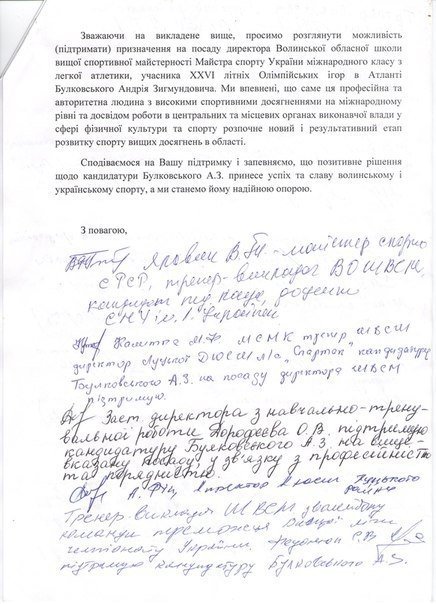 Зважаючи на викладене вище, просимо розглянути можливість
(підтримати) призначення на посаду директора Волинської обласної школи
вищої спортивної майстерності Майстра спорту України міжнародного класу з
легкої атлетики, учасника XXVI літніх Олімпійських ігор в Атланті
Булковського Андрія Зигмундовича. Ми впевнені, що саме ця професійна та
авторитетна людина з високими спортивними досягненнями на міжнародному
рівні та досвідом роботи в центральних та місцевих органах виконавчої влади у
сфері фізичної культури та спорту розпочне новий і результативний етап
розвитку спорту вищих досягнень в області.
Сподіваємося на Вашу підтримку і запевняємо, що позитивне рішення
щодо кандидатури Булковського А.З. принесе успіх та славу волинському і
українському спорту, а ми станемо йому надійною опорою.
З повагою,
В. - майстер спорту
СРСР, тренер-викладач ВОШВСМ,
кандидат пед. наук, доцент
СНУ ім. Л. Українки
МСМК тренер ШВСМ
директор Луцької ДЮСШ "Спартак" кандидатуру
Булковського А.З. на посаду директора ШВСМ
підтримую.
Заст. директора з навчально-трену-
вальної роботи Дорофеєва О.В. підтримую
кандидатуру Булковського А.З. на вище-
вказану посаду, у зв'язку з професійністю
та порядністю.
Луцького
району
Тренер-викладач ШВСМ
команди
чемпіонату України. С.В.
підтримую кандидатуру Булковського А.З.